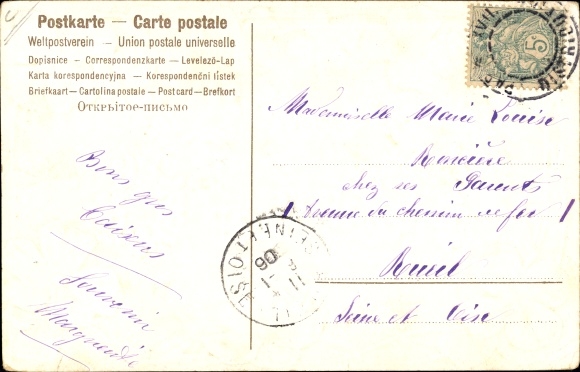 Postkarte — Carte postale
Weltpostverein — Union postale universelle
Dopisnice — Correspondenzkarte — Levelező-Lap
Karta korespondencyjna — Korespondenční lístek
Briefkaart — Cartolina postale — Postcard — Brefkort
Открытое-письмо
5
Mademoiselle Marie Louise
chez ses Parents
1 Avenue du chemin de fer 1
Rueil
Seine et Oise
SEINE-ET-OISE
11
06
Bons gros
Souvenir
Marguerite